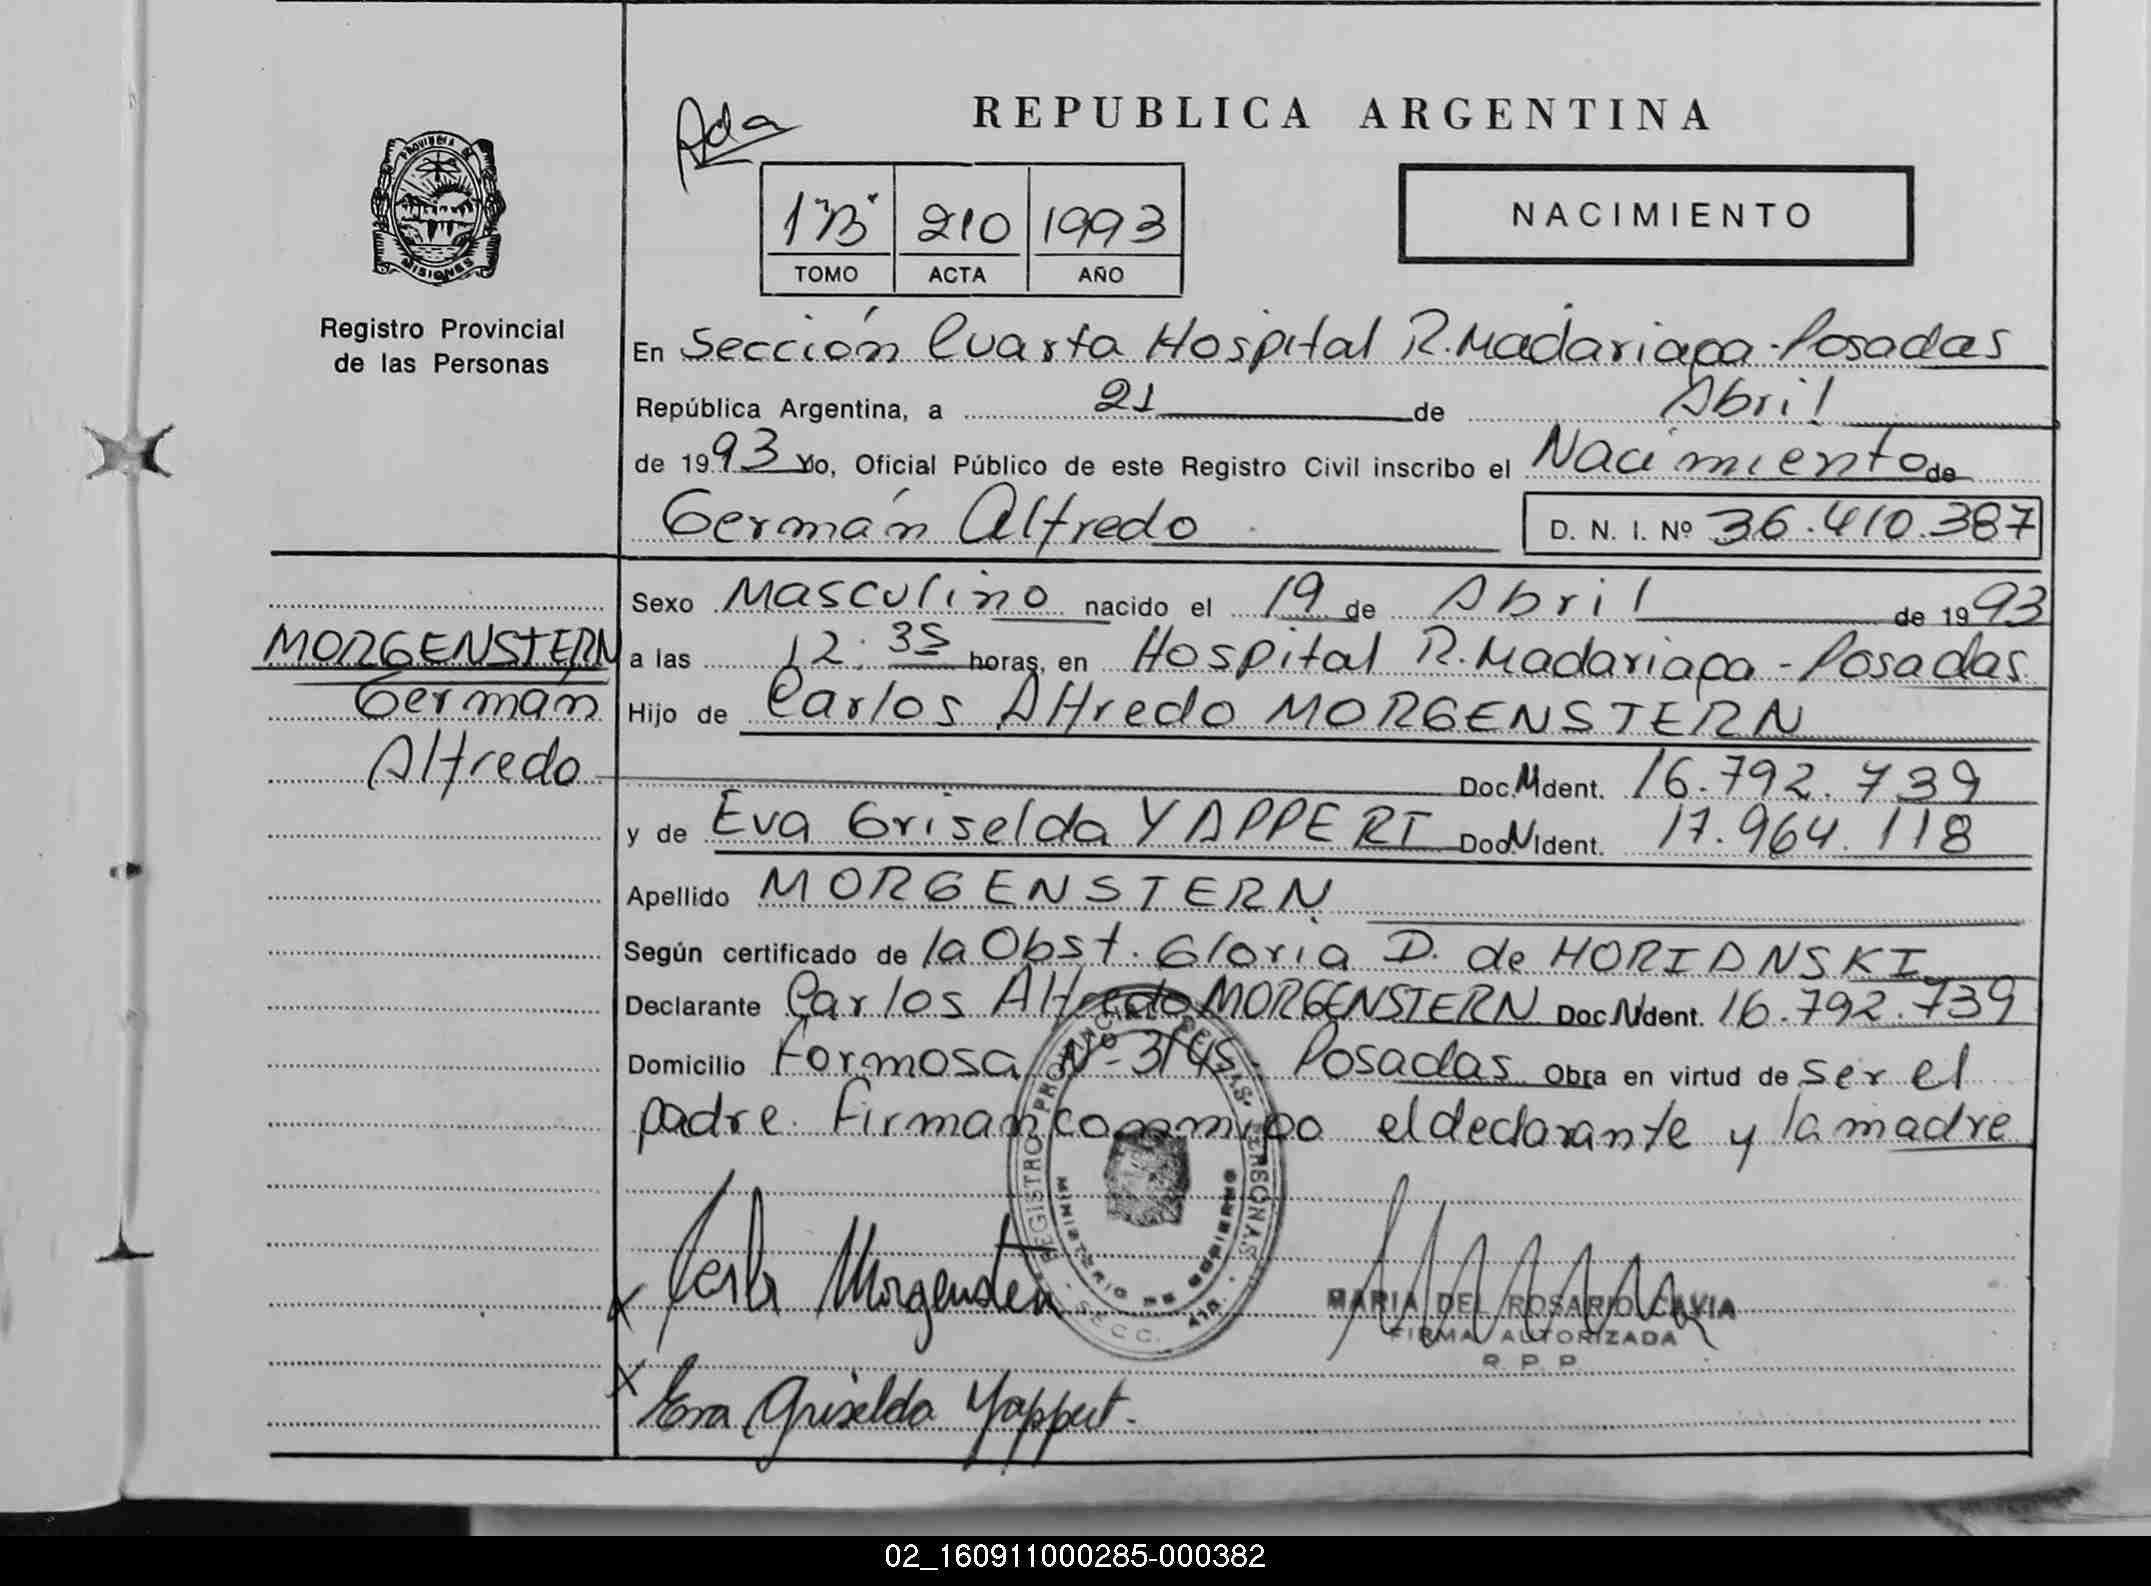 Rda
REPUBLICA ARGENTINA
PROVINCIA DE
MISIONES
1"B" 210 1993
TOMO ACTA AÑO
NACIMIENTO
Registro Provincial
de las Personas
En Sección Cuarta Hospital R. Madariaga - Posadas
República Argentina, a 21 de Abril
de 1993 Yo, Oficial Público de este Registro Civil inscribo el Nacimiento de
Germán Alfredo D. N. I. Nº 36.410.387
Sexo Masculino nacido el 19 de Abril de 1993
MORGENSTERN
Germán
Alfredo
a las 12:35 horas, en Hospital R. Madariaga - Posadas
Hijo de Carlos Alfredo MORGENSTERN
Doc. N Ident. 16.792.739
y de Eva Griselda YAPPERT Doc. N Ident. 17.964.118
Apellido MORGENSTERN
Según certificado de la Obst. Gloria D. de HORIANSKI
Declarante Carlos Alfredo MORGENSTERN Doc. N Ident. 16.792.739
Domicilio Formosa Nº 3145 - Posadas Obra en virtud de ser el
padre. Firman conmigo el declarante y la madre
REGISTRO PROVINCIAL DE LAS PERSONAS
MINISTERIO DE GOBIERNO
SECC. 4ta.
X Carlos Morgenstern
MARIA DEL ROSARIO CAVIA
FIRMA AUTORIZADA
R. P. P.
X Eva Griselda Yappert.
02_160911000285-000382